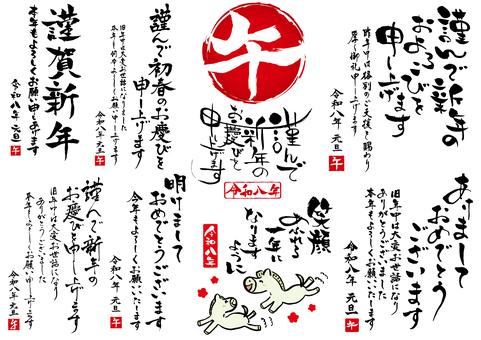 謹賀新年
本年もよろしくお願い申し上げます
令和八年 元旦
午
謹んで初春のお慶びを
申し上げます
旧年中は大変お世話になりました
本年も何卒よろしくお願い申し上げます
令和八年 元旦
午
午
謹んで
新年の
お慶びを
申し上げます
令和八年
謹んで新年の
およろこびを
申し上げます
昨年中は格別のご支援を賜わり
厚く御礼申し上げます
令和八年 元旦
午
謹んで新年の
お慶びを申し上げます
旧年中は大変お世話になり
ありがとうございます
本年もよろしくお願い申し上げます
令和八年 元旦
午
明けまして
おめでとうございます
今年もよろしくお願いします
令和八年 元旦
午
笑顔
あふれる
一年に
なります
ように
令和八年
あけまして
おめでとう
ございます
旧年中は大変お世話になり
ありがとうございました
本年もよろしくお願いいたします
令和八年 元旦
午